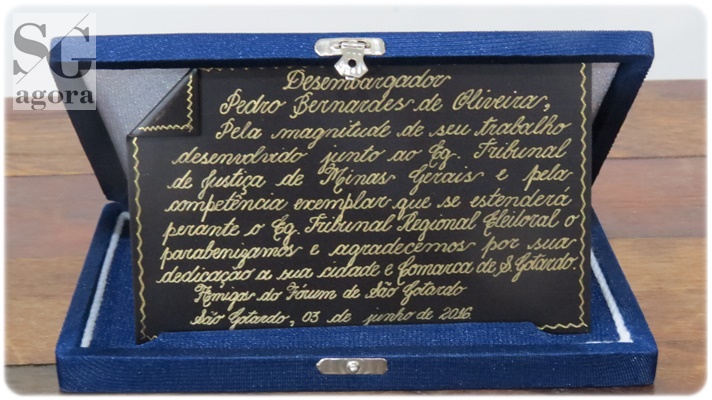 SG
agora
Desembargador
Pedro Bernardes de Oliveira,
Pela magnitude de seu trabalho
desenvolvido junto ao Eg. Tribunal
de Justiça de Minas Gerais e pela
competência exemplar que se estenderá
perante o Eg. Tribunal Regional Eleitoral o
parabenizamos e agradecemos por sua
dedicação a sua cidade e Comarca de S. Gotardo.
Amigos do Fórum de São Gotardo
São Gotardo, 03 de junho de 2016